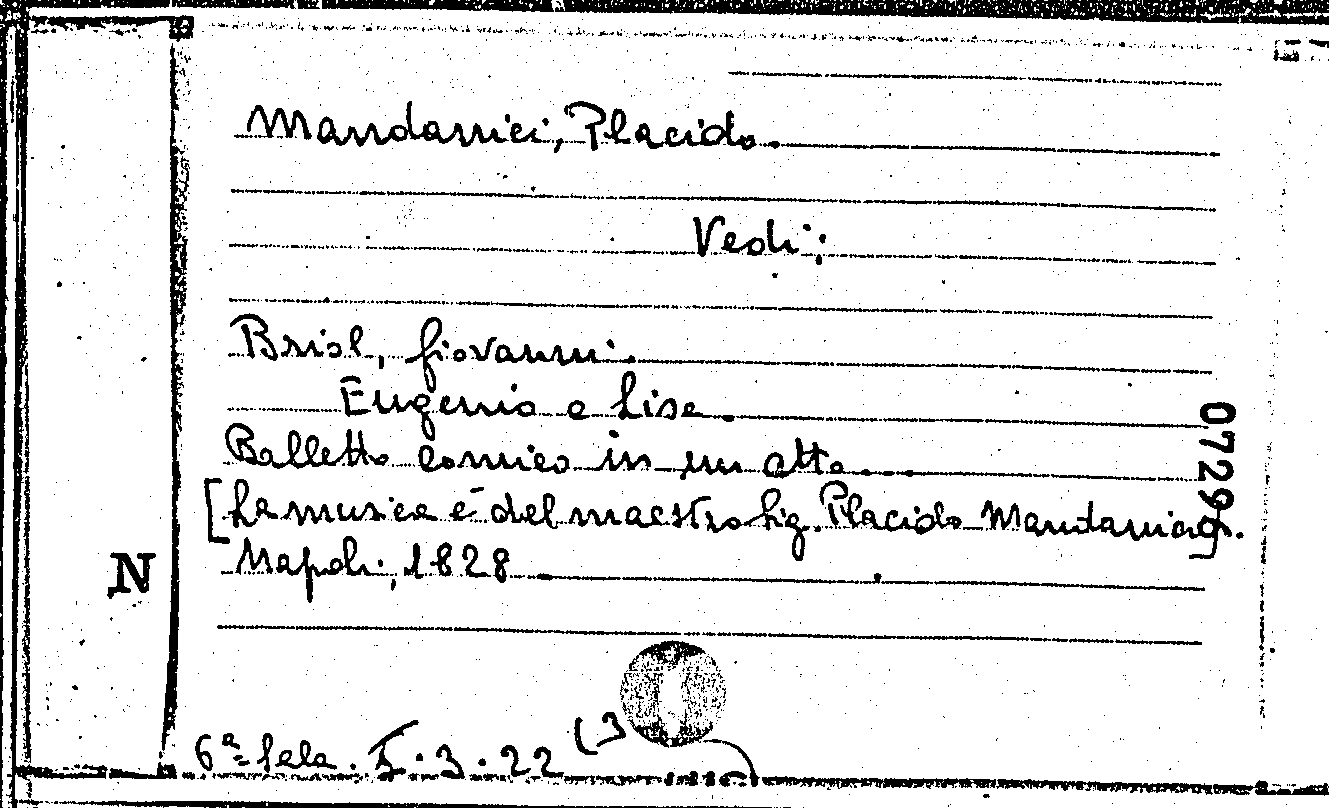 Mandanici, Placido.
Vedi:
Briol, Giovanni.
Eugenio e Lisa.
Balletto comico in un atto....
[La musica è del maestro Sig. Placido Mandanici].
Napoli, 1828
07299
N
6ª Sala. I. 3. 22 (3